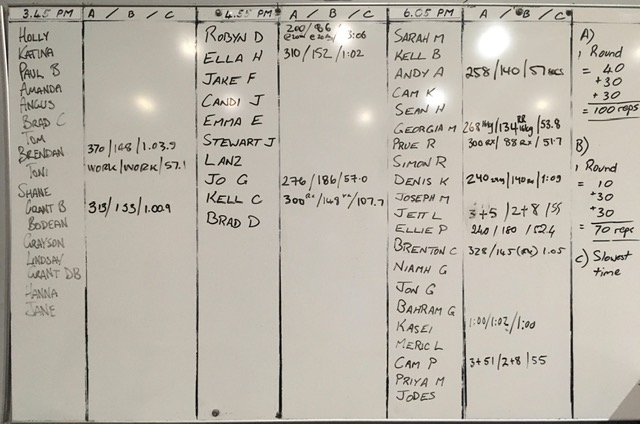 3.45 PM A / B / C
HOLLY
KATINA
PAUL B
AMANDA
ANGUS
BRAD C
TOM
BRENDAN 370/148/1.03.9
TONI WORK/WORK/57.1
SHANE
GRANT B 313/133/1.00.9
BODEAN
GRAYSON
LINDSAY
GRANT DB
HANNA
JANE
4.55 PM A / B / C
ROBYN D 200/86/
ELLA H 310/152/1:02
JAKE F
CANDI J
EMMA E
STEWART J
LANZ
JO G 276/186/57.0
KELL C 300RX/148/107.7
BRAD D
6.05 PM A / B / C
SARAH M
KELL B
ANDY A 258/140/57 secs
CAM K
SEAN H
GEORGIA M 268/134/53.8
PRUE R 300RX/88RX/51.7
SIMON R
DENIS K 240/140/1:09
JOSEPH M
JETT L 3+5/2+8/55
ELLIE P 240/180/52.4
BRENTON C 328/145(RX)1.05
NIAMH G
JON G
BAHRAM G
KASEI 1:00/1:02/1:00
MERIC L
CAM P 3+51/2+8/55
PRIYA M
JODES
A)
1 Round
= 40
+30
+30
= 100 reps
B)
1 Round
= 10
+30
+30
= 70 reps
C) Slowest
time